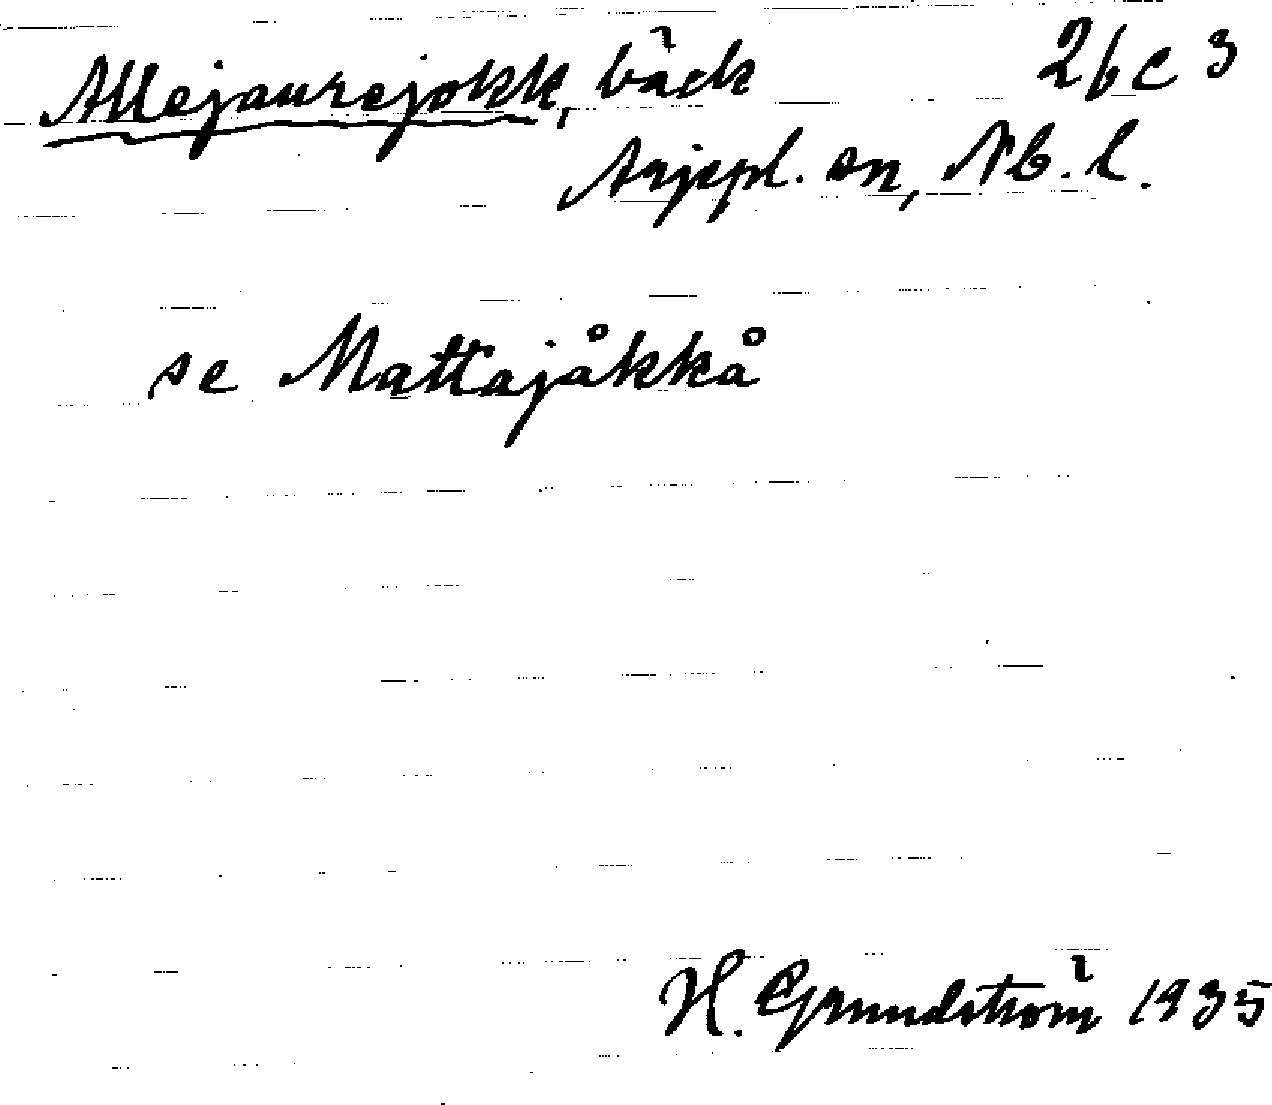 Allejaurejokk, bäck 26 c 3
Arjepl. sn, Nb. l.
se Mattajåkkå
H. Grundström 1935